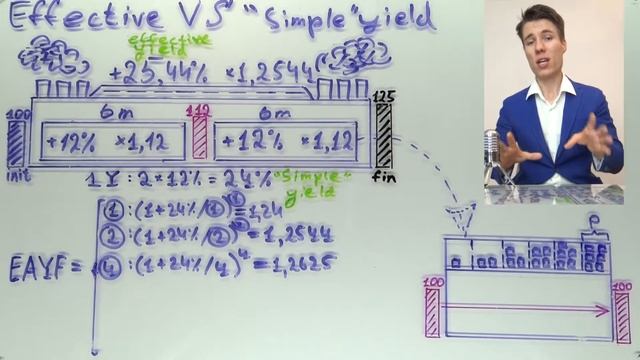 Effective VS "Simple" yield
effective
yield
+25,44% ×1,2544
100
6m
112
6m
125
+12% ×1,12
+12% ×1,12
init
1Y: 2×12% = 24% "Simple"
yield
fin
1 : (1+24%/1)¹ = 1,24
2 : (1+24%/2)² = 1,2544
EAYF =
4 : (1+24%/4)⁴ = 1,2625
P
100
100